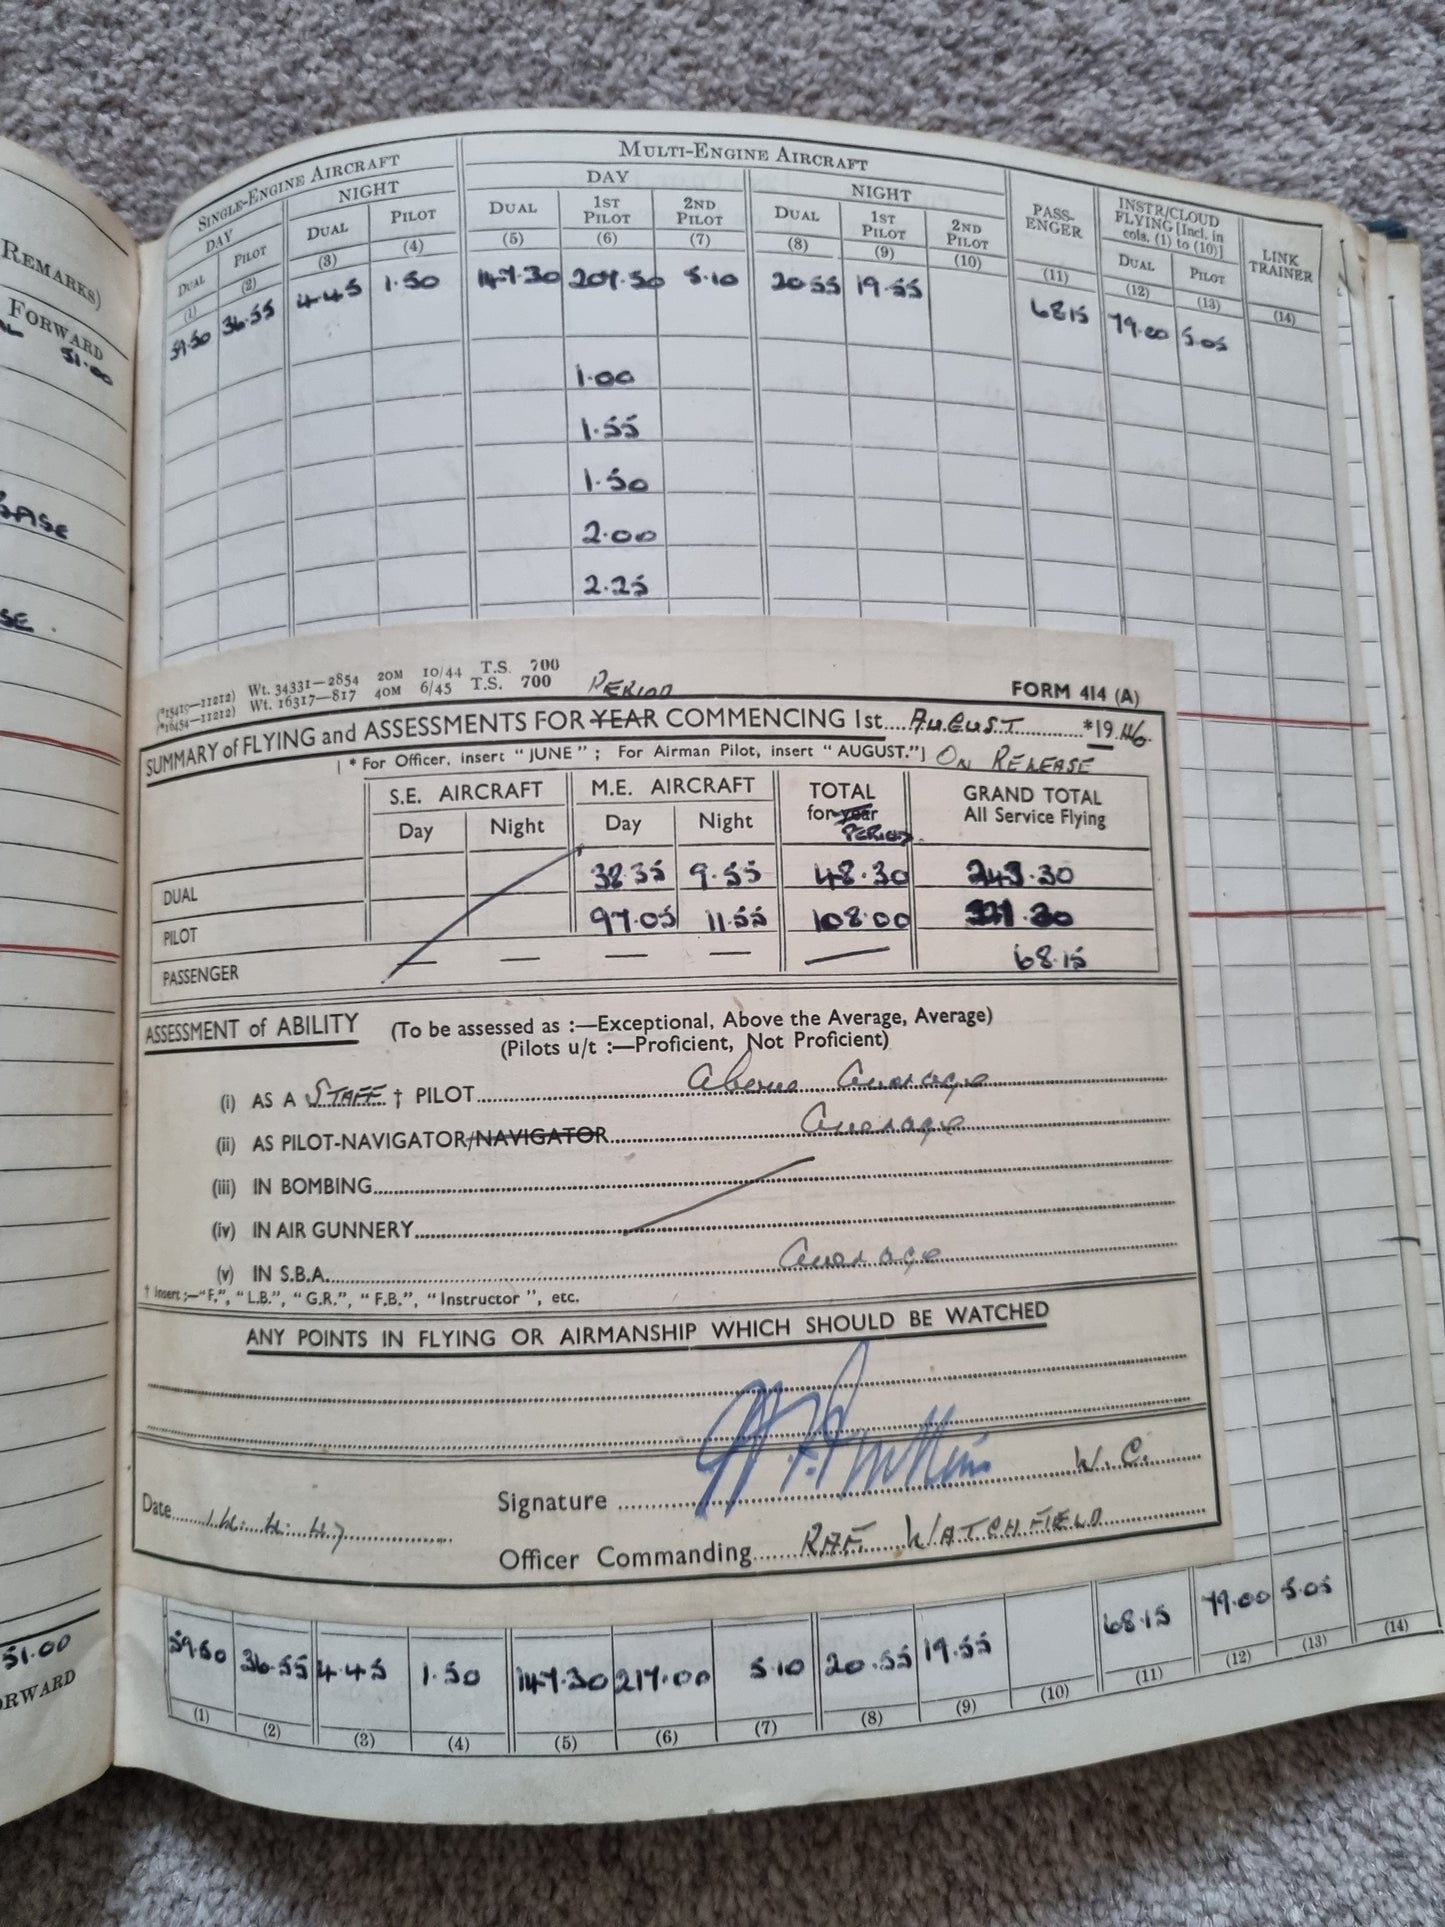 REMARKS)
FORWARD
51.00
BASE
SE.
51.00
ORWARD
SINGLE-ENGINE AIRCRAFT MULTI-ENGINE AIRCRAFT
DAY NIGHT DAY NIGHT PASS-ENGER INSTR/CLOUD FLYING [Incl. in cols. (1) to (10)] LINK TRAINER
DUAL PILOT DUAL PILOT DUAL 1ST PILOT 2ND PILOT DUAL 1ST PILOT 2ND PILOT DUAL PILOT
(1) (2) (3) (4) (5) (6) (7) (8) (9) (10) (11) (12) (13) (14)
59.50 36.55 4.45 1.50 147.30 207.50 5.10 20.55 19.55 68.15 79.00 5.05
1.00
1.55
1.50
2.00
2.25
(*15419—11212) Wt. 34331—2854 20M 10/44 T.S. 700
(*16454—11212) Wt. 16317—817 40M 6/45 T.S. 700
PERIOD FORM 414 (A)
SUMMARY of FLYING and ASSESSMENTS FOR YEAR COMMENCING 1st AUGUST *1946
[ * For Officer, insert "JUNE"; For Airman Pilot, insert "AUGUST."] ON RELEASE
S.E. AIRCRAFT M.E. AIRCRAFT TOTAL GRAND TOTAL
Day Night Day Night for year PERIOD All Service Flying
DUAL 38.35 9.55 48.30 243.30
PILOT 97.05 11.55 108.00 .30
PASSENGER — — — — — 68.15
ASSESSMENT of ABILITY (To be assessed as :—Exceptional, Above the Average, Average)
(Pilots u/t :—Proficient, Not Proficient)
(i) AS A STAFF † PILOT Above Average
(ii) AS PILOT-NAVIGATOR/NAVIGATOR Average
(iii) IN BOMBING
(iv) IN AIR GUNNERY
(v) IN S.B.A. Average
† Insert :—"F.", "L.B.", "G.R.", "F.B.", "Instructor", etc.
ANY POINTS IN FLYING OR AIRMANSHIP WHICH SHOULD BE WATCHED
Date 14.4.47 Signature W.C.
Officer Commanding RAF WATCHFIELD
59.50 36.55 4.45 1.50 147.30 217.00 5.10 20.55 19.55 68.15 79.00 5.05
(1) (2) (3) (4) (5) (6) (7) (8) (9) (10) (11) (12) (13) (14)